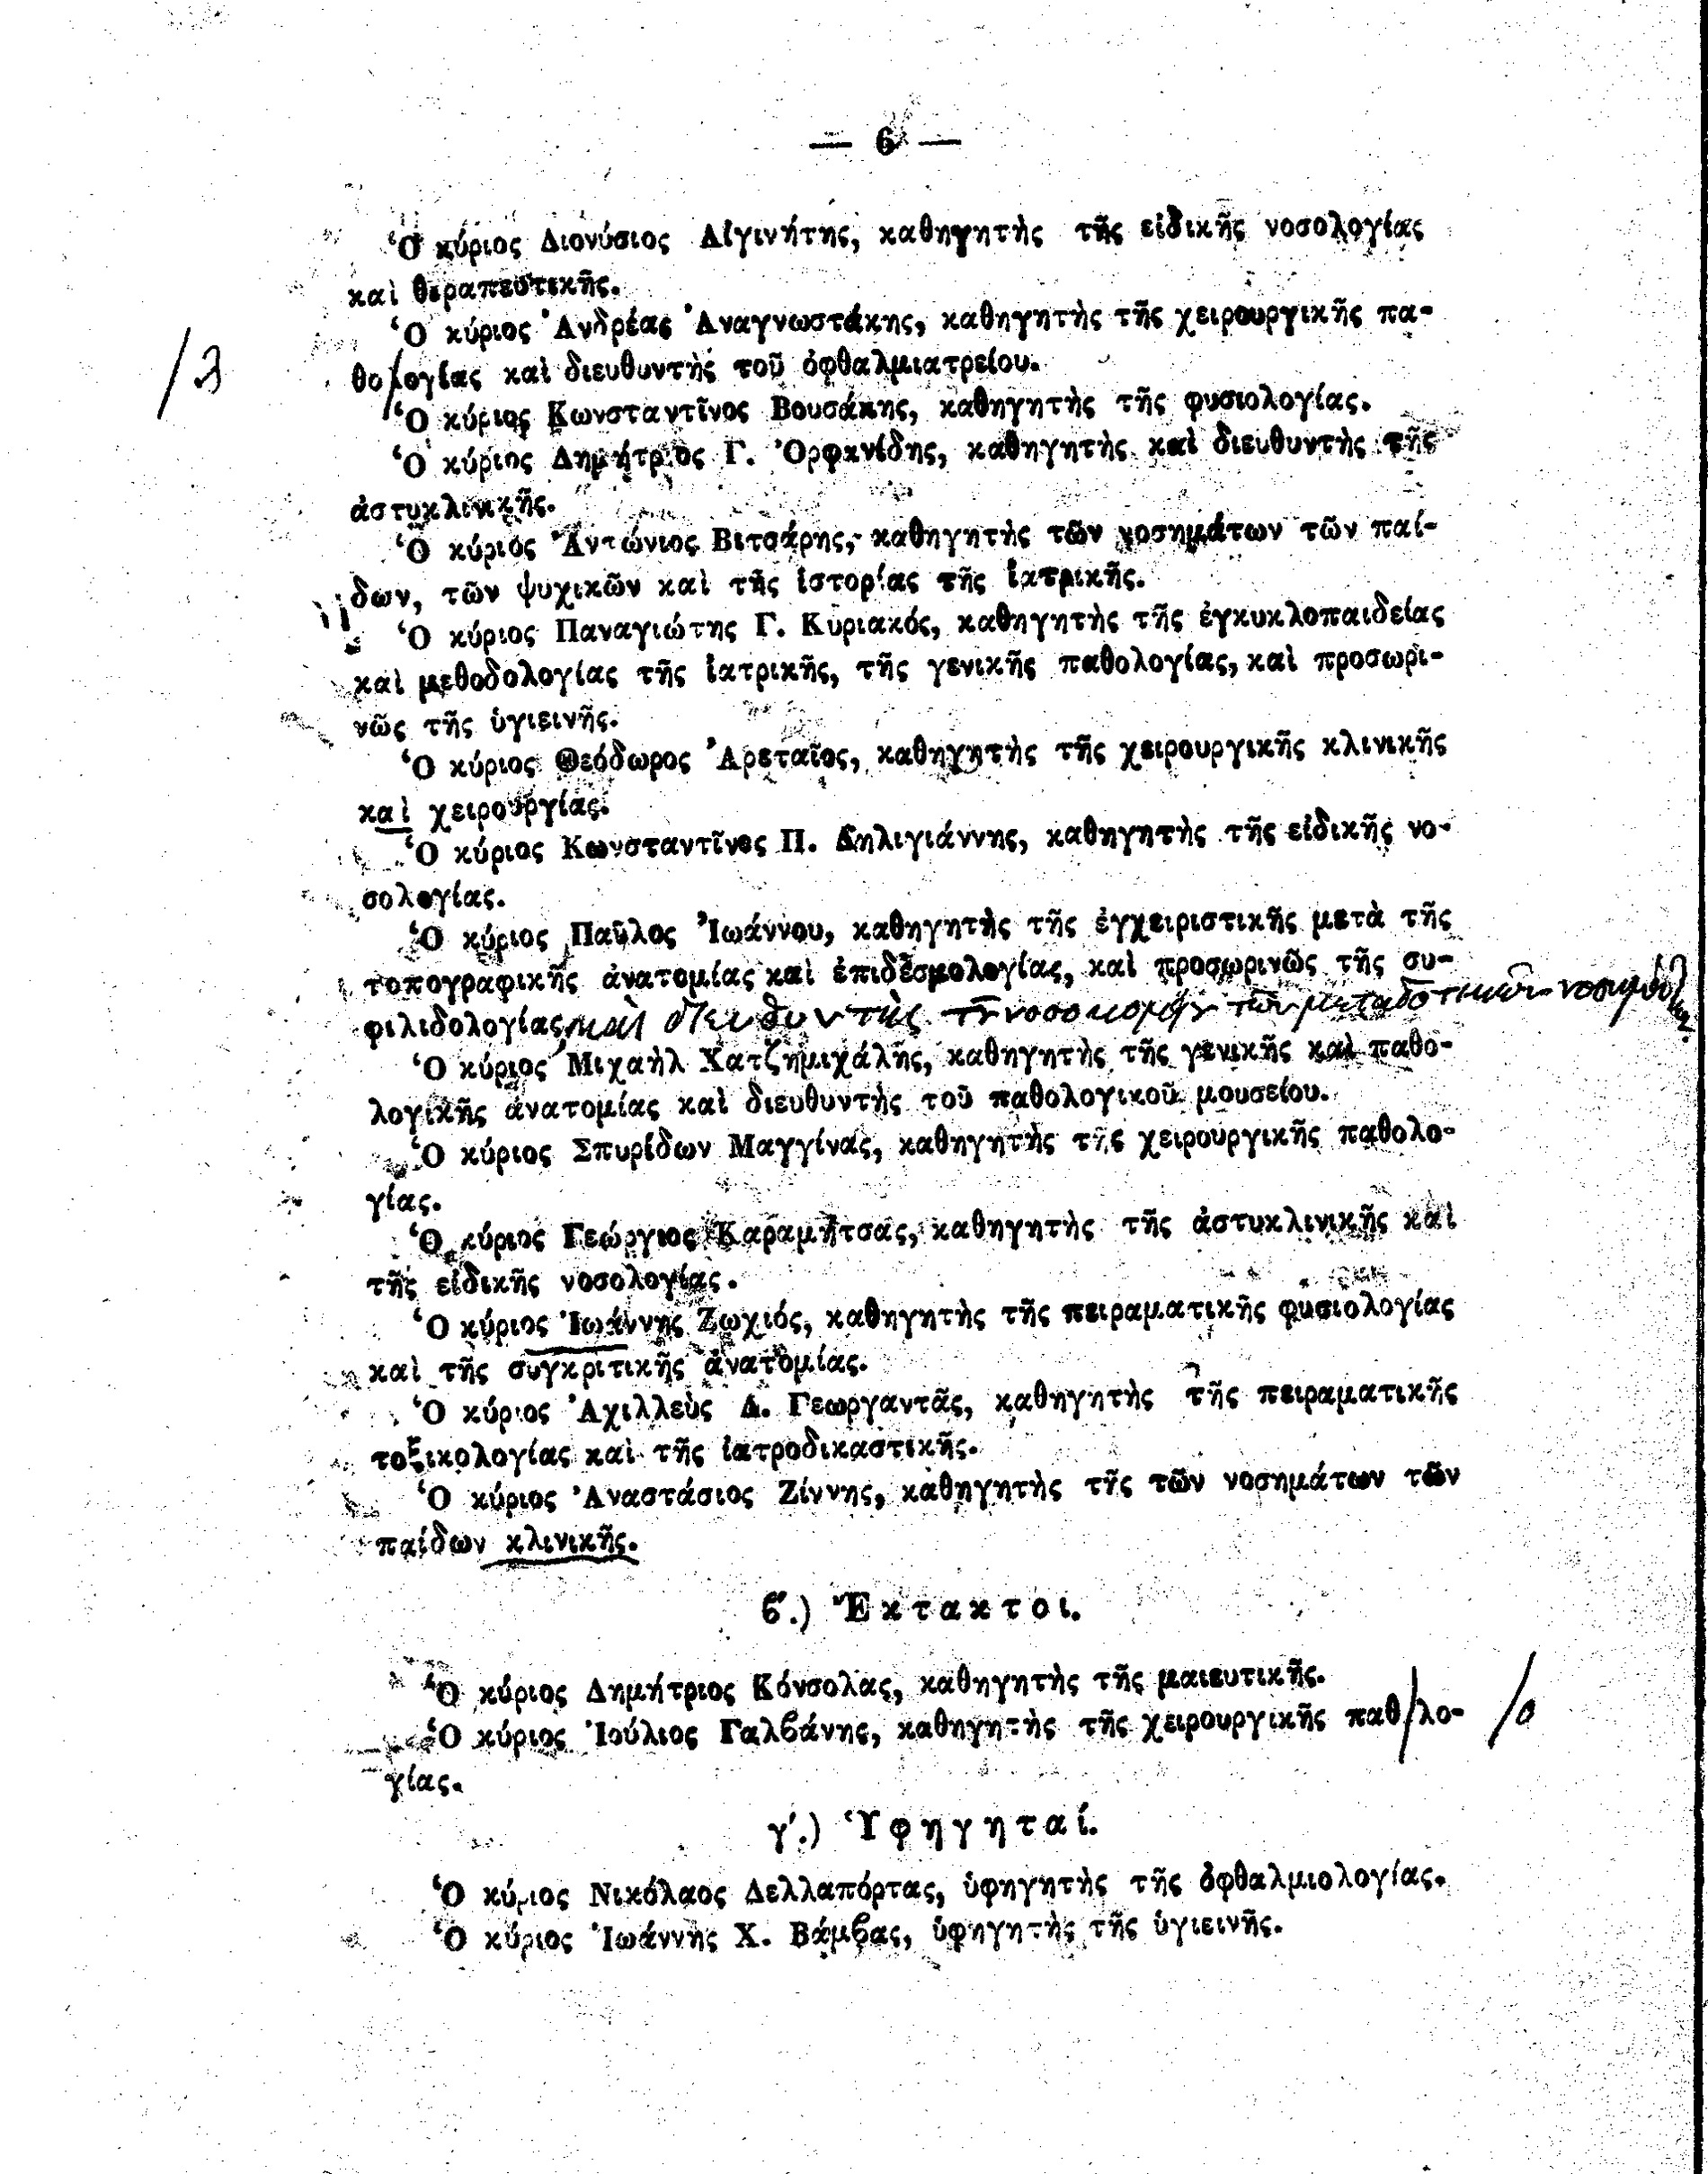 — 6 —
Ὁ κύριος Διονύσιος Αἰγινήτης, καθηγητὴς τῆς εἰδικῆς νοσολογίας
καὶ θεραπευτικῆς.
Ὁ κύριος Ἀνδρέας Ἀναγνωστάκης, καθηγητὴς τῆς χειρουργικῆς πα-
θολογίας καὶ διευθυντὴς τοῦ ὀφθαλμιατρείου.
Ὁ κύριος Κωνσταντῖνος Βουσάκης, καθηγητὴς τῆς φυσιολογίας.
Ὁ κύριος Δημήτριος Γ. Ὀρφανίδης, καθηγητὴς καὶ διευθυντὴς τῆς
ἀστυκλινικῆς.
Ὁ κύριος Ἀντώνιος Βιτσάρης, καθηγητὴς τῶν νοσημάτων τῶν παί-
δων, τῶν ψυχικῶν καὶ τῆς ἱστορίας τῆς ἰατρικῆς.
Ὁ κύριος Παναγιώτης Γ. Κυριακός, καθηγητὴς τῆς ἐγκυκλοπαιδείας
καὶ μεθοδολογίας τῆς ἰατρικῆς, τῆς γενικῆς παθολογίας, καὶ προσωρι-
νῶς τῆς ὑγιεινῆς.
Ὁ κύριος Θεόδωρος Ἀρεταῖος, καθηγητὴς τῆς χειρουργικῆς κλινικῆς
καὶ χειρουργίας.
Ὁ κύριος Κωνσταντῖνος Π. Δηλιγιάννης, καθηγητὴς τῆς εἰδικῆς νο-
σολογίας.
Ὁ κύριος Παῦλος Ἰωάννου, καθηγητὴς τῆς ἐγχειριστικῆς μετὰ τῆς
τοπογραφικῆς ἀνατομίας καὶ ἐπιδεσμολογίας, καὶ προσωρινῶς τῆς συ-
φιλιδολογίας, καὶ διευθυντὴς τῶν μεταδοτικῶν
Ὁ κύριος Μιχαὴλ Χατζημιχάλης, καθηγητὴς τῆς γενικῆς καὶ παθο-
λογικῆς ἀνατομίας καὶ διευθυντὴς τοῦ παθολογικοῦ μουσείου.
Ὁ κύριος Σπυρίδων Μαγγίνας, καθηγητὴς τῆς χειρουργικῆς παθολο-
γίας.
Ὁ κύριος Γεώργιος Καραμήτσας, καθηγητὴς τῆς ἀστυκλινικῆς καὶ
τῆς εἰδικῆς νοσολογίας.
Ὁ κύριος Ἰωάννης Ζωχιός, καθηγητὴς τῆς πειραματικῆς φυσιολογίας
καὶ τῆς συγκριτικῆς ἀνατομίας.
Ὁ κύριος Ἀχιλλεὺς Δ. Γεωργαντᾶς, καθηγητὴς τῆς πειραματικῆς
τοξικολογίας καὶ τῆς ἰατροδικαστικῆς.
Ὁ κύριος Ἀναστάσιος Ζίννης, καθηγητὴς τῆς τῶν νοσημάτων τῶν
παίδων κλινικῆς.
ϐ΄.) Ἔκτακτοι.
Ὁ κύριος Δημήτριος Κόνσολας, καθηγητὴς τῆς μαιευτικῆς.
Ὁ κύριος Ἰούλιος Γαλϐάνης, καθηγητὴς τῆς χειρουργικῆς παθ/λο- /ο
γίας.
γ΄.) Ὑφηγηταί.
Ὁ κύριος Νικόλαος Δελλαπόρτας, ὑφηγητὴς τῆς ὀφθαλμιολογίας.
Ὁ κύριος Ἰωάννης Χ. Βάμϐας, ὑφηγητὴς τῆς ὑγιεινῆς.